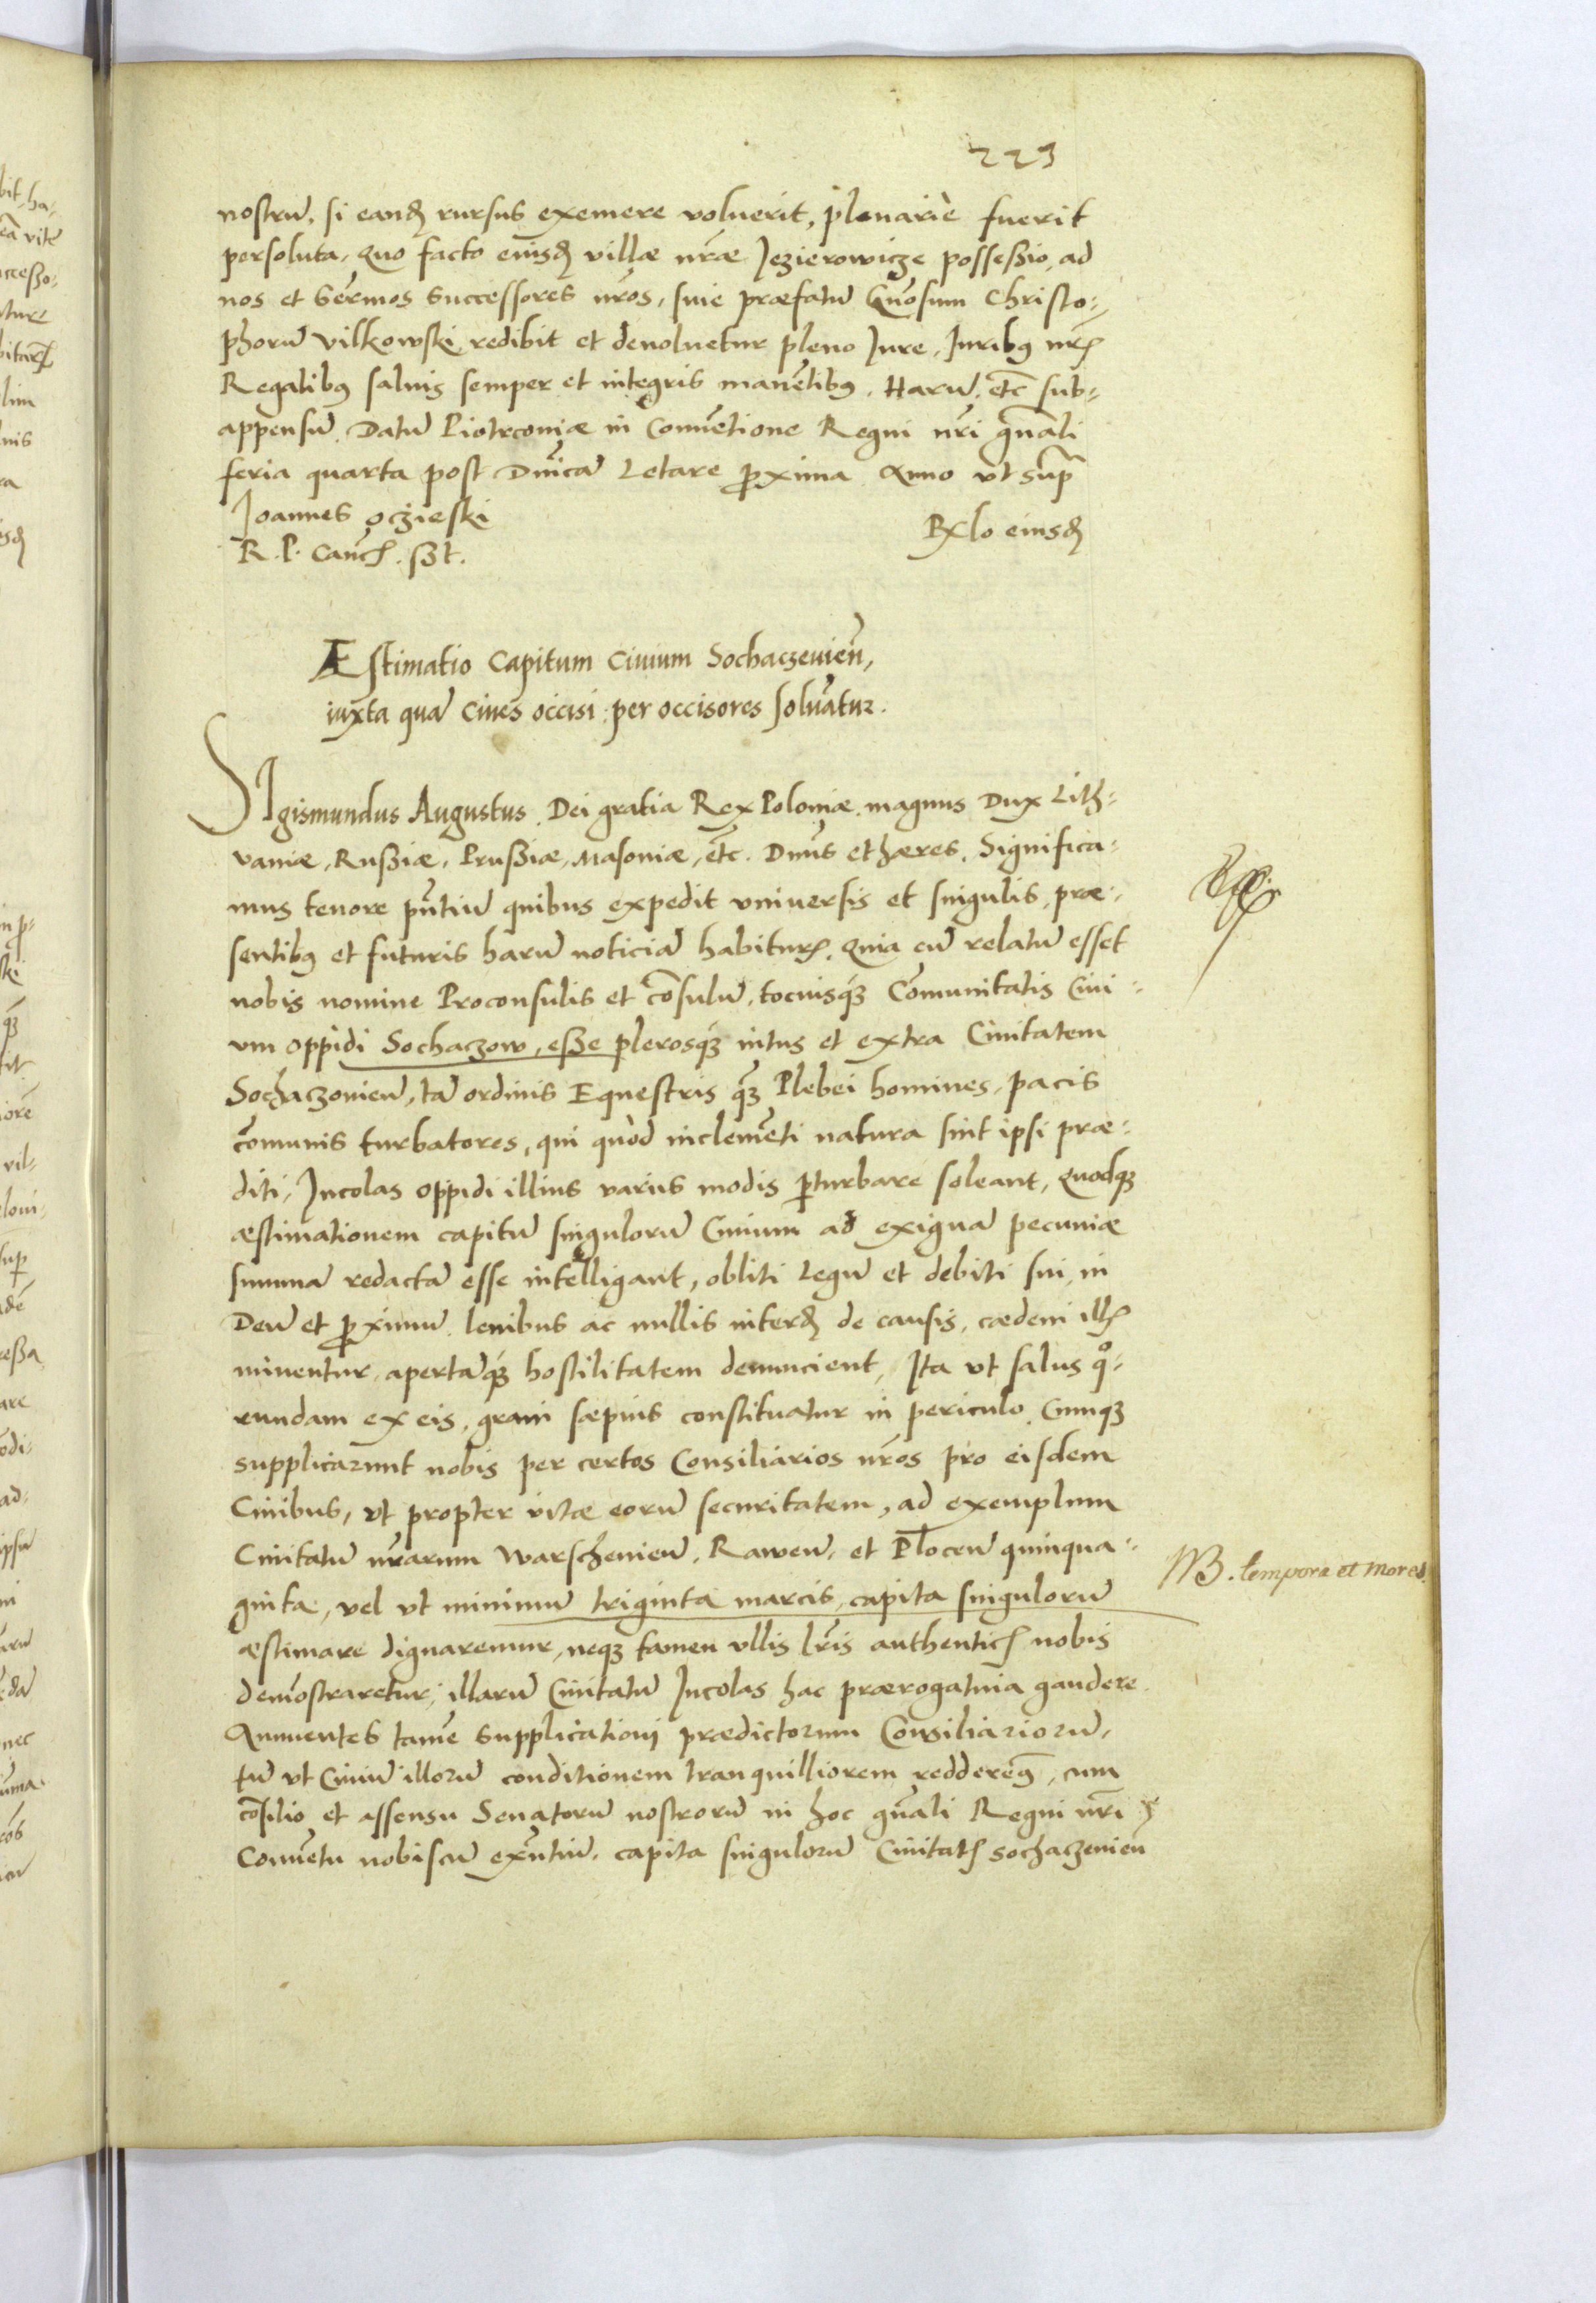 223
nostrū, si eandē rursus exemere voluerit, plenariè fuerit
persoluta, quo facto eiusdē villæ nr̄æ Jezierowicze possessio, ad
nos et Ser̄mos successores nr̄os, siue præfatū Gn̄osum Christo⸗
phorū Vilkowski redibit et deuoluetur pleno Iure, Iuribꝰ nr̄is
Regalibꝰ saluis semper et integris manētibꝰ. Harū etc̄ sub⸗
appensū. Datū Piotrcouiæ in Conuētione Regni nr̄i gn̄ali
feria quarta post Dn̄icā Letare ꝓxima Anno vt supͣ
Joannes oczieski
R. P. Cancē. sßt.
Rlo eiusdē
Æstimatio Capitum Ciuium Sochaczeuien̄,
iuxta quā Ciues occisi per occisores soluātur.
SIgismundus Augustus Dei gratia Rex Poloniæ magnus Dux Lith⸗
vaniæ, Rußiæ, Prußiæ, Masoniæ, etc̄. Dn̄us et hæres. Significa⸗
mus tenore pn̄tiū quibus expedit vniuersis et singulis, præ⸗
sentibꝰ et futuris harū noticiā habituris. Quia cū relatū esset
nobis nomine Proconsulis et cōsulū, tociusqꝫ Cōmunitatis Ciui⸗
um oppidi Sochaczow, eße plerosqꝫ intus et extra Ciuitatem
Sochaczouien̄, tā ordinis Equestris qꝫ Plebei homines, pacis
cōmunis turbatores, qui quòd inclemēti natura sint ipsi præ⸗
diti, Incolas oppidi illius varijs modis ꝑturbare soleant, Quodqꝫ
æstimationem capitū singulorū Ciuium ad exiguā pecuniæ
summā redactā esse intelligant, obliti Legū et debiti sui in
Deū et ꝓximū, leuibus ac nullis interdū de causis, cædem illis
minentur, apertāqꝫ hostilitatem denuncient, Ita vt salus qͦ⸗
rundam ex eis, graui sæpius constituatur in periculo. Cumqꝫ
supplicarunt nobis per certos Consiliarios nr̄os pro eisdem
Ciuibus, vt propter vitæ eorū securitatem, ad exemplum
Ciuitatū nr̄arum Warscheuien̄, Rawen̄, et Plocen̄ quinqua⸗
ginta, vel vt minimū triginta marcis, capita singulorū
NB. tempora et mores.
æstimare dignaremur, neqꝫ tamen vllis lr̄is authenticis nobis
demōstraretur, illarū Ciuitatū Incolas hac prærogatiuia gaudere.
Annuentes tamē supplicationi prædictorum Consiliariorū,
tū vt Ciuiū illorū conditionem tranquilliorem redderemꝰ, cum
cōsilio et assensu Senatorū nostrorū in hoc gn̄ali Regni nr̄i
Conuētu nobiscū exn̄tiū, capita singulorū Ciuitatis Sochaczeuien̄